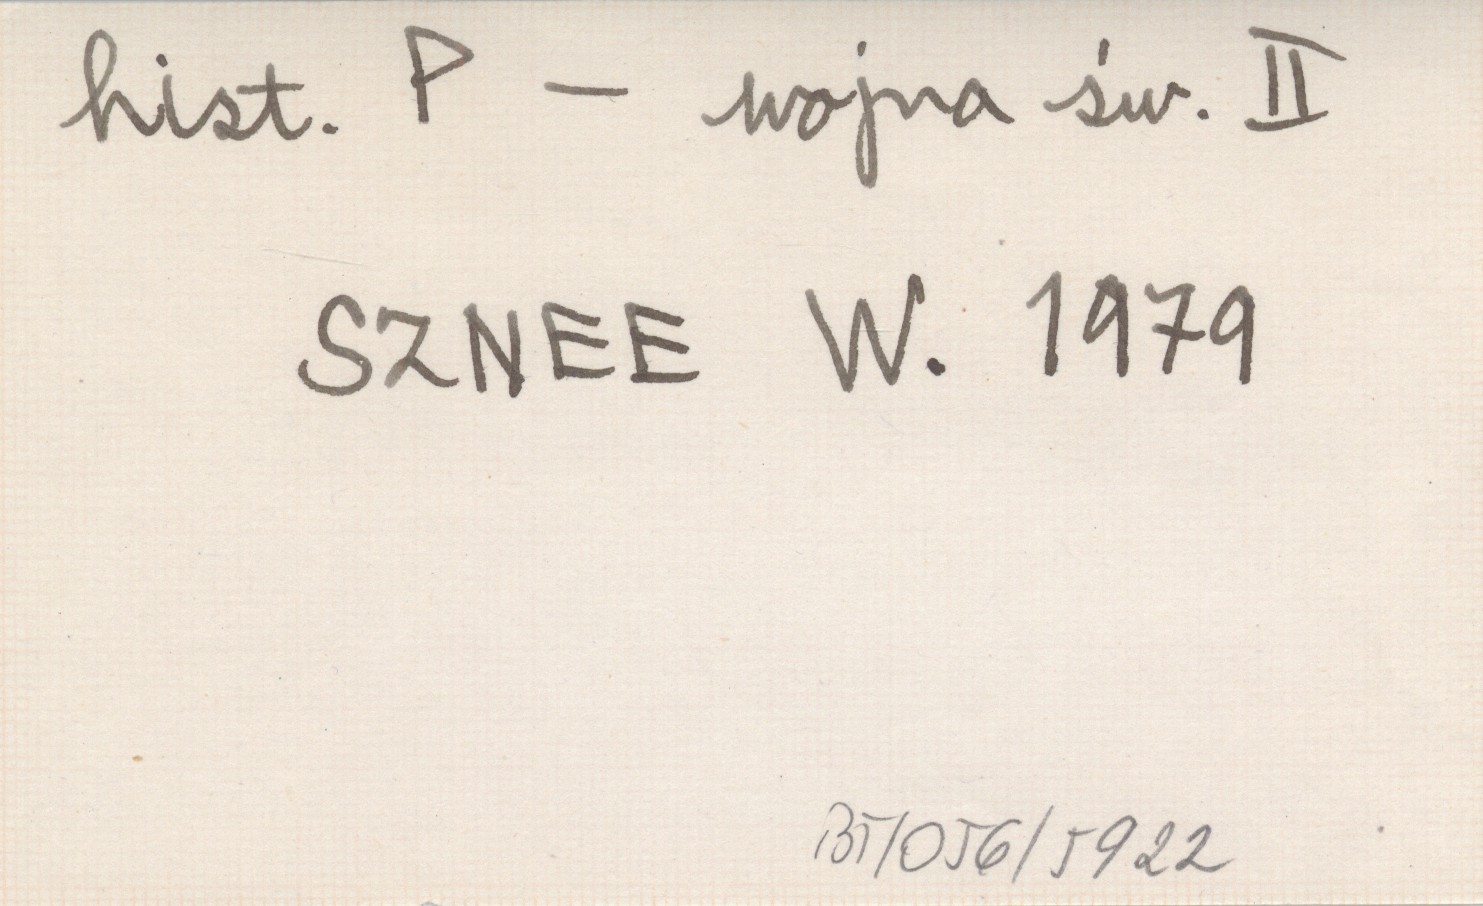 hist. P – wojna św. II
SZNEE W. 1979
BT/056/5922